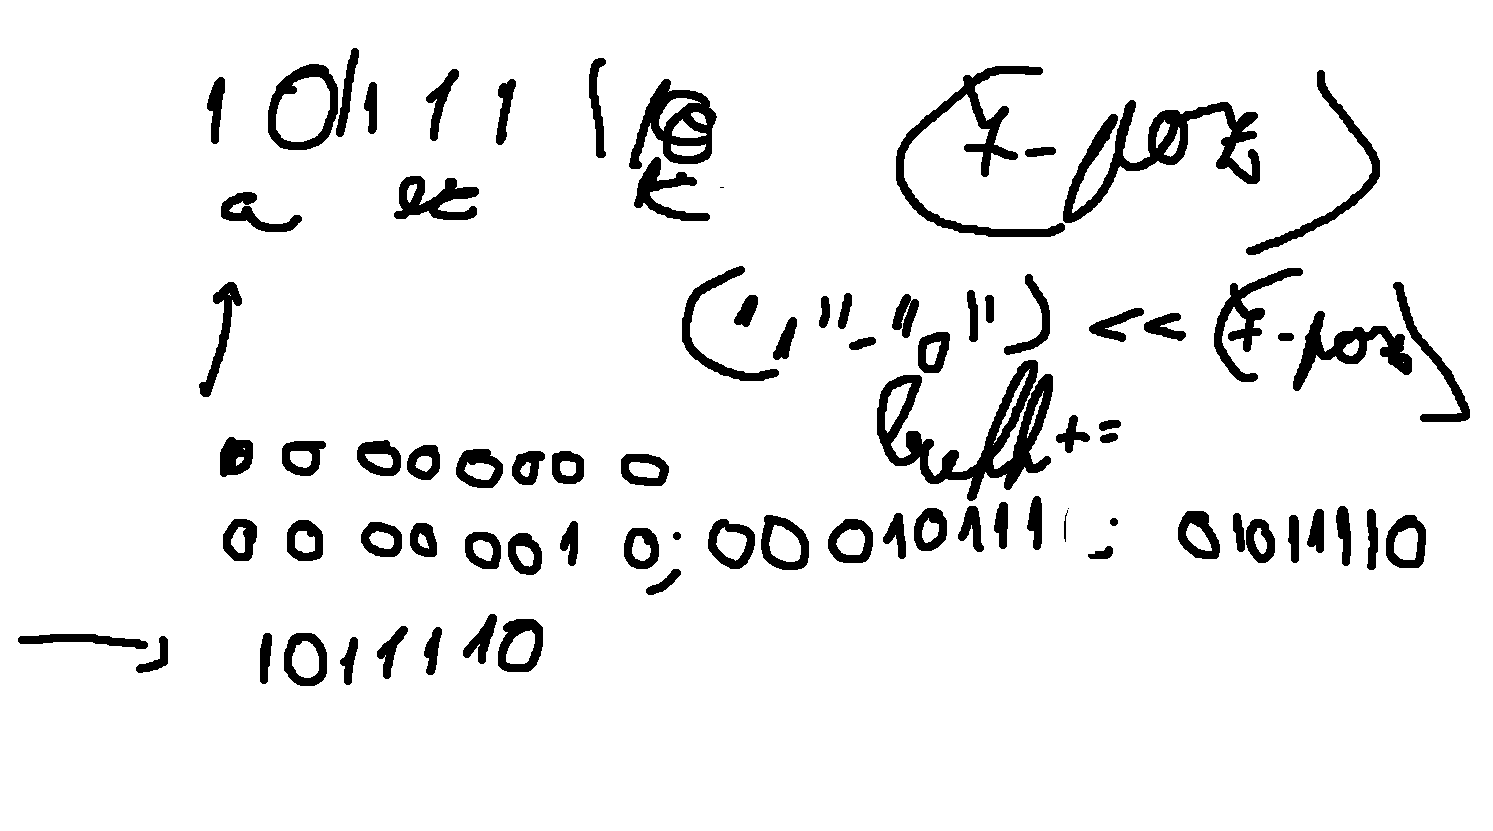 10/111 |
a
(7-poz)
("1"-"0") << (7-poz)
buff +=
0 0 0 0 0 0 0 0
0 0 0 0 0 0 1 0; 00010111 ; 01011110
1011110